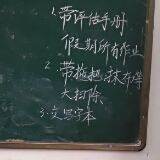 1.带评估手册
假期所有作业
2.带拖把、抹布等
大扫除
3.交写字本